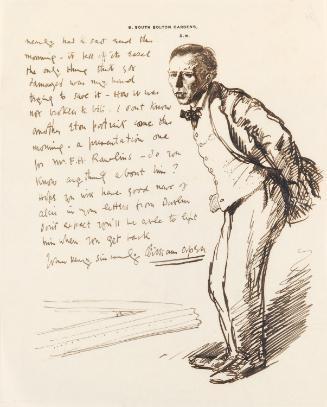 8. SOUTH BOLTON GARDENS,
S.W.
nearly had a sad end this
morning - it fell off its easel
the only thing that got
damaged was my hand
trying to save it - How it was
not broken to bits I dont know
Another Eton portrait came this
morning - a presentation one
for Mr E.H. - do you
know anything about him?
Hope you will have good news of
in your letters from Dublin
don't expect you'll be able to
him when you get back
Yours very sincerely William Orpen